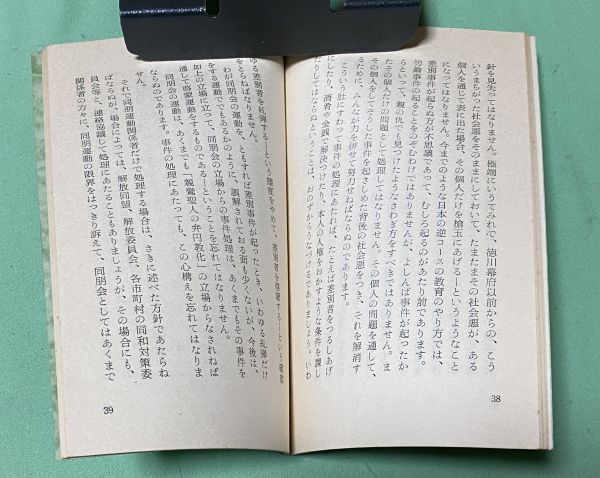 針を見失つてはなりません。極端にいうてみれで、徳川幕府以前からの、こう
いうまちがつた社会悪をそのままにしておいて、たまたまその社会悪が、ある
個人を通して表に出た場合、その個人だけを槍玉にあげる―というようなこと
になつてはなりません。今までのような日本の逆コースの教育のやり方では、
差別事件が起らぬ方が不思議であつて、むしろ起るのがあたり前であります。
勿論事件が起ることをのぞむわけではありませんが、よしんば事件が起つたか
らといつて、親の仇でも見つけたようなさわぎ方をすべきではありません。ま
たその個人だけの問題として処理してはなりません。その個人の問題を通して、
その個人をしてそうした事件を起さしめた背後の社会悪をつき、それを解消す
るために、みんなが力を併せて努力せねばならぬのであります。
こういう肚にすわつて事件の処理にあたれば、たとえば差別者をつるしあげ
にしたり、酒肴や金銭で解決つけたり、本人の人権をおかすような条件を課し
たりしてはならぬということは、おのずからうなづけるでありましよう。いわ
38
ゆる差別者を糺弾する―という態度をやめて、差別者を啓蒙する―という態度
をとらねばなりません。
ともすれば差別事件が起つたとき、いわゆる糺弾だけ
わが同朋会の運動を、誤解されておる面も少くないが、今後は、
をする運動ででもあるかのように、
同朋会の立場からの事件処理は、あくまでもその事件を
如上の立場に立つて、
通して啓蒙運動をするものである―ということを忘れてはなりません。
同朋会の運動は、あくまでも「親鸞聖人の弁円教化」の立場からなされねば
ならぬのであります。事件の処理にあたつても、この心構えを忘れてはなりま
せん。
それで同朋運動関係者だけで処理する場合は、さきに述べた方針であたらね
ばならぬが、場合によつては、解放同盟、解放委員会、各市町村の同和対策委
員会等と、連絡協議して処理にあたることもありましようが、その場合にも、
関係者の方々に、同朋運動の限界をはつきり訴えて、同朋会としてはあくまで
39